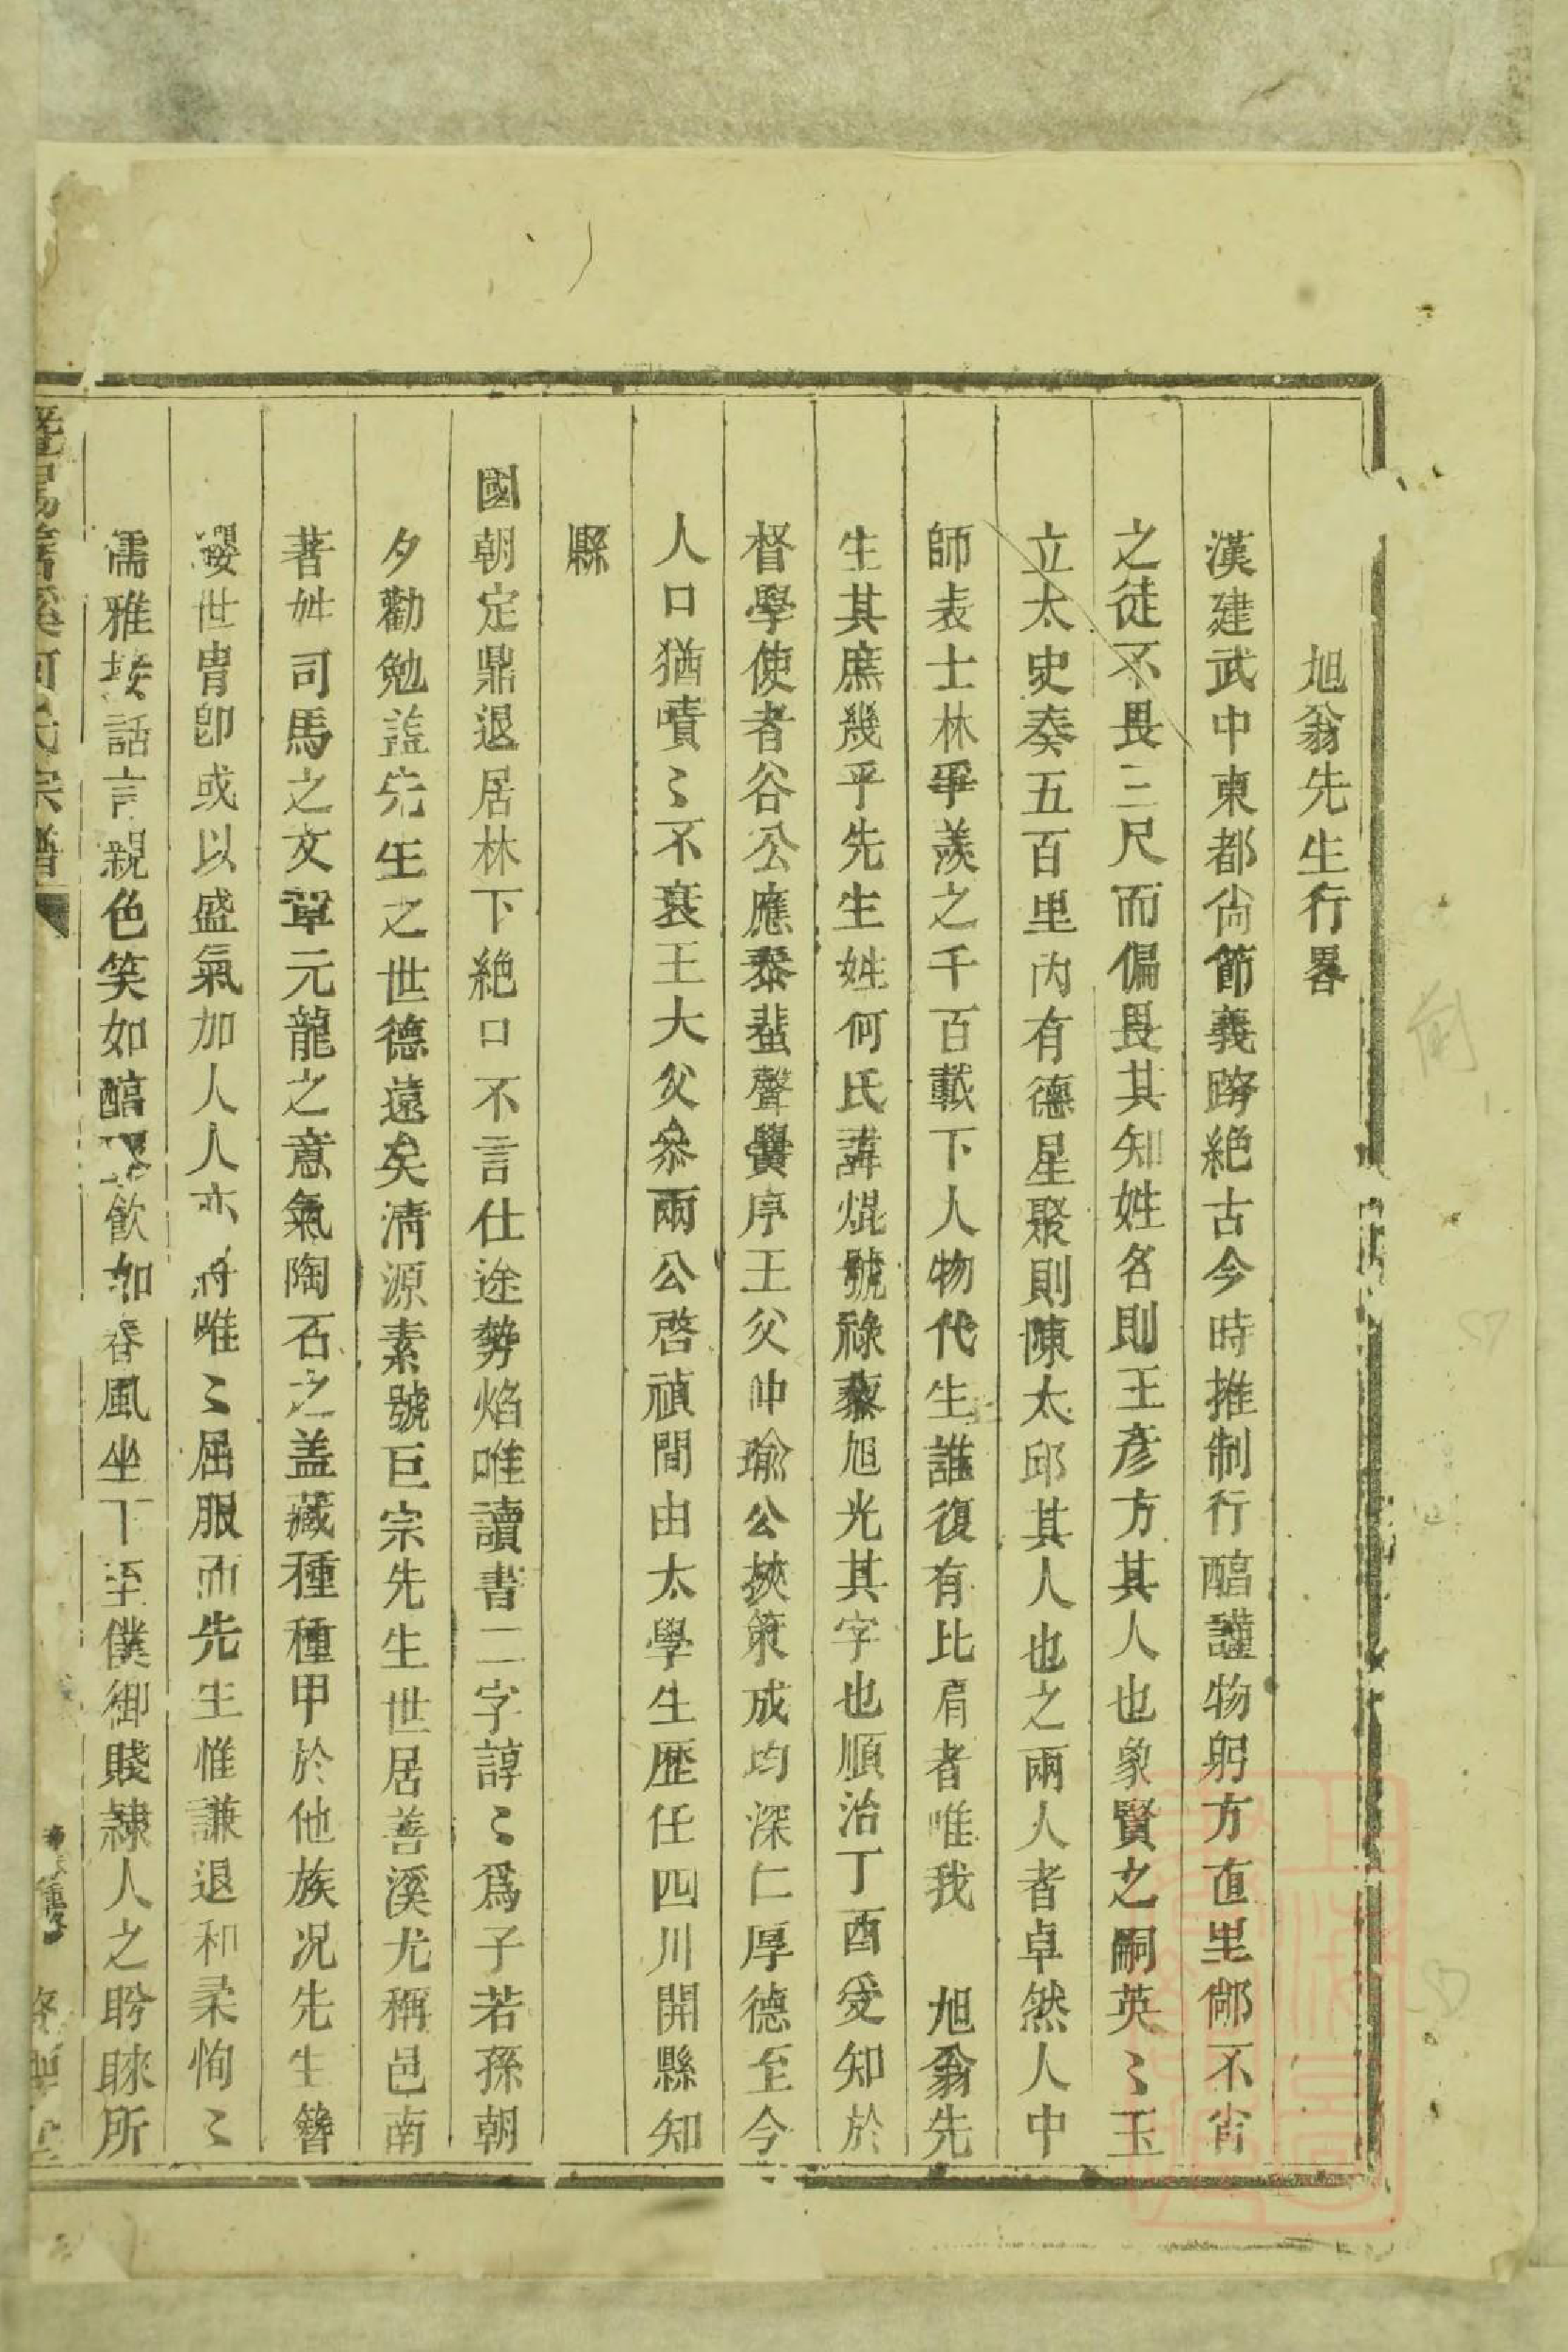 旭翁先生行畧
漢建武中東都尙節義跨絶古今時推制行醕謹物躬方直里鄉不肖
之徒不畏三尺而偏畏其知姓名則王彥方其人也象賢之嗣英〻玉
立太史奏五百里內有德星聚則陳太邱其人也之兩人者卓然人中
師表士林爭羨之千百載下人物代生誰復有比肩者唯我 旭翁先
生其庶幾乎先生姓何氏諱焜號祿藜旭光其字也順治丁酉受知於
督學使者谷公應泰蜚聲黌序王父仲瑜公挾策成均深仁厚德至今
人口猶嘖〻不衰王大父叅兩公啓禎間由太學生歷任四川開縣知
縣
國朝定鼎退居林下絶口不言仕途勢焰唯讀書二字諄〻爲子若孫朝
夕勸勉盖先生之世德遠矣淸源素號巨宗先生世居善溪尤稱邑南
著姓司馬之文章元龍之意氣陶石之盖藏種種甲於他族况先生簪
纓世冑卽或以盛氣加人人亦 唯〻屈服而先生惟謙退和柔恂〻
儒雅接話言親色笑如醕 飮如春風坐下至僕御賤隷人之盻睞所
曁陽善溪何氏宗譜